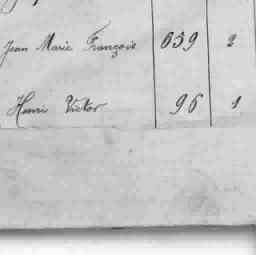 Jean Marie François 659 2
Henri Victor 96 1